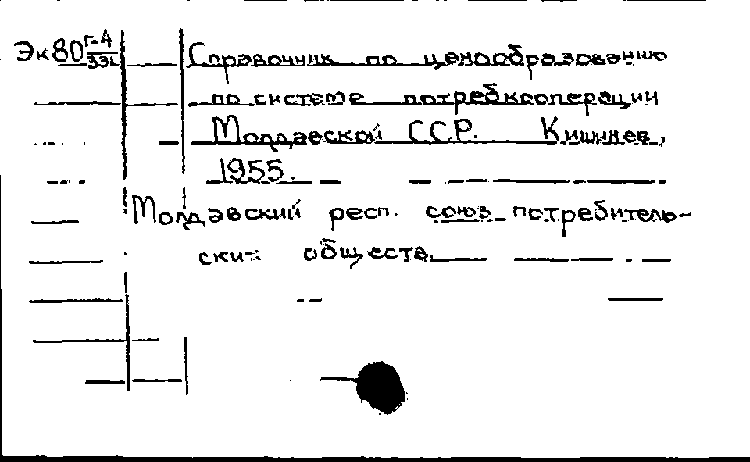 Эк80 Г-4
331
Справочник по ценообразованию
по системе потребкооперации
Молдавской ССР. Кишинев,
1955.
Молдавский респ. союз потребитель-
ских обществ.